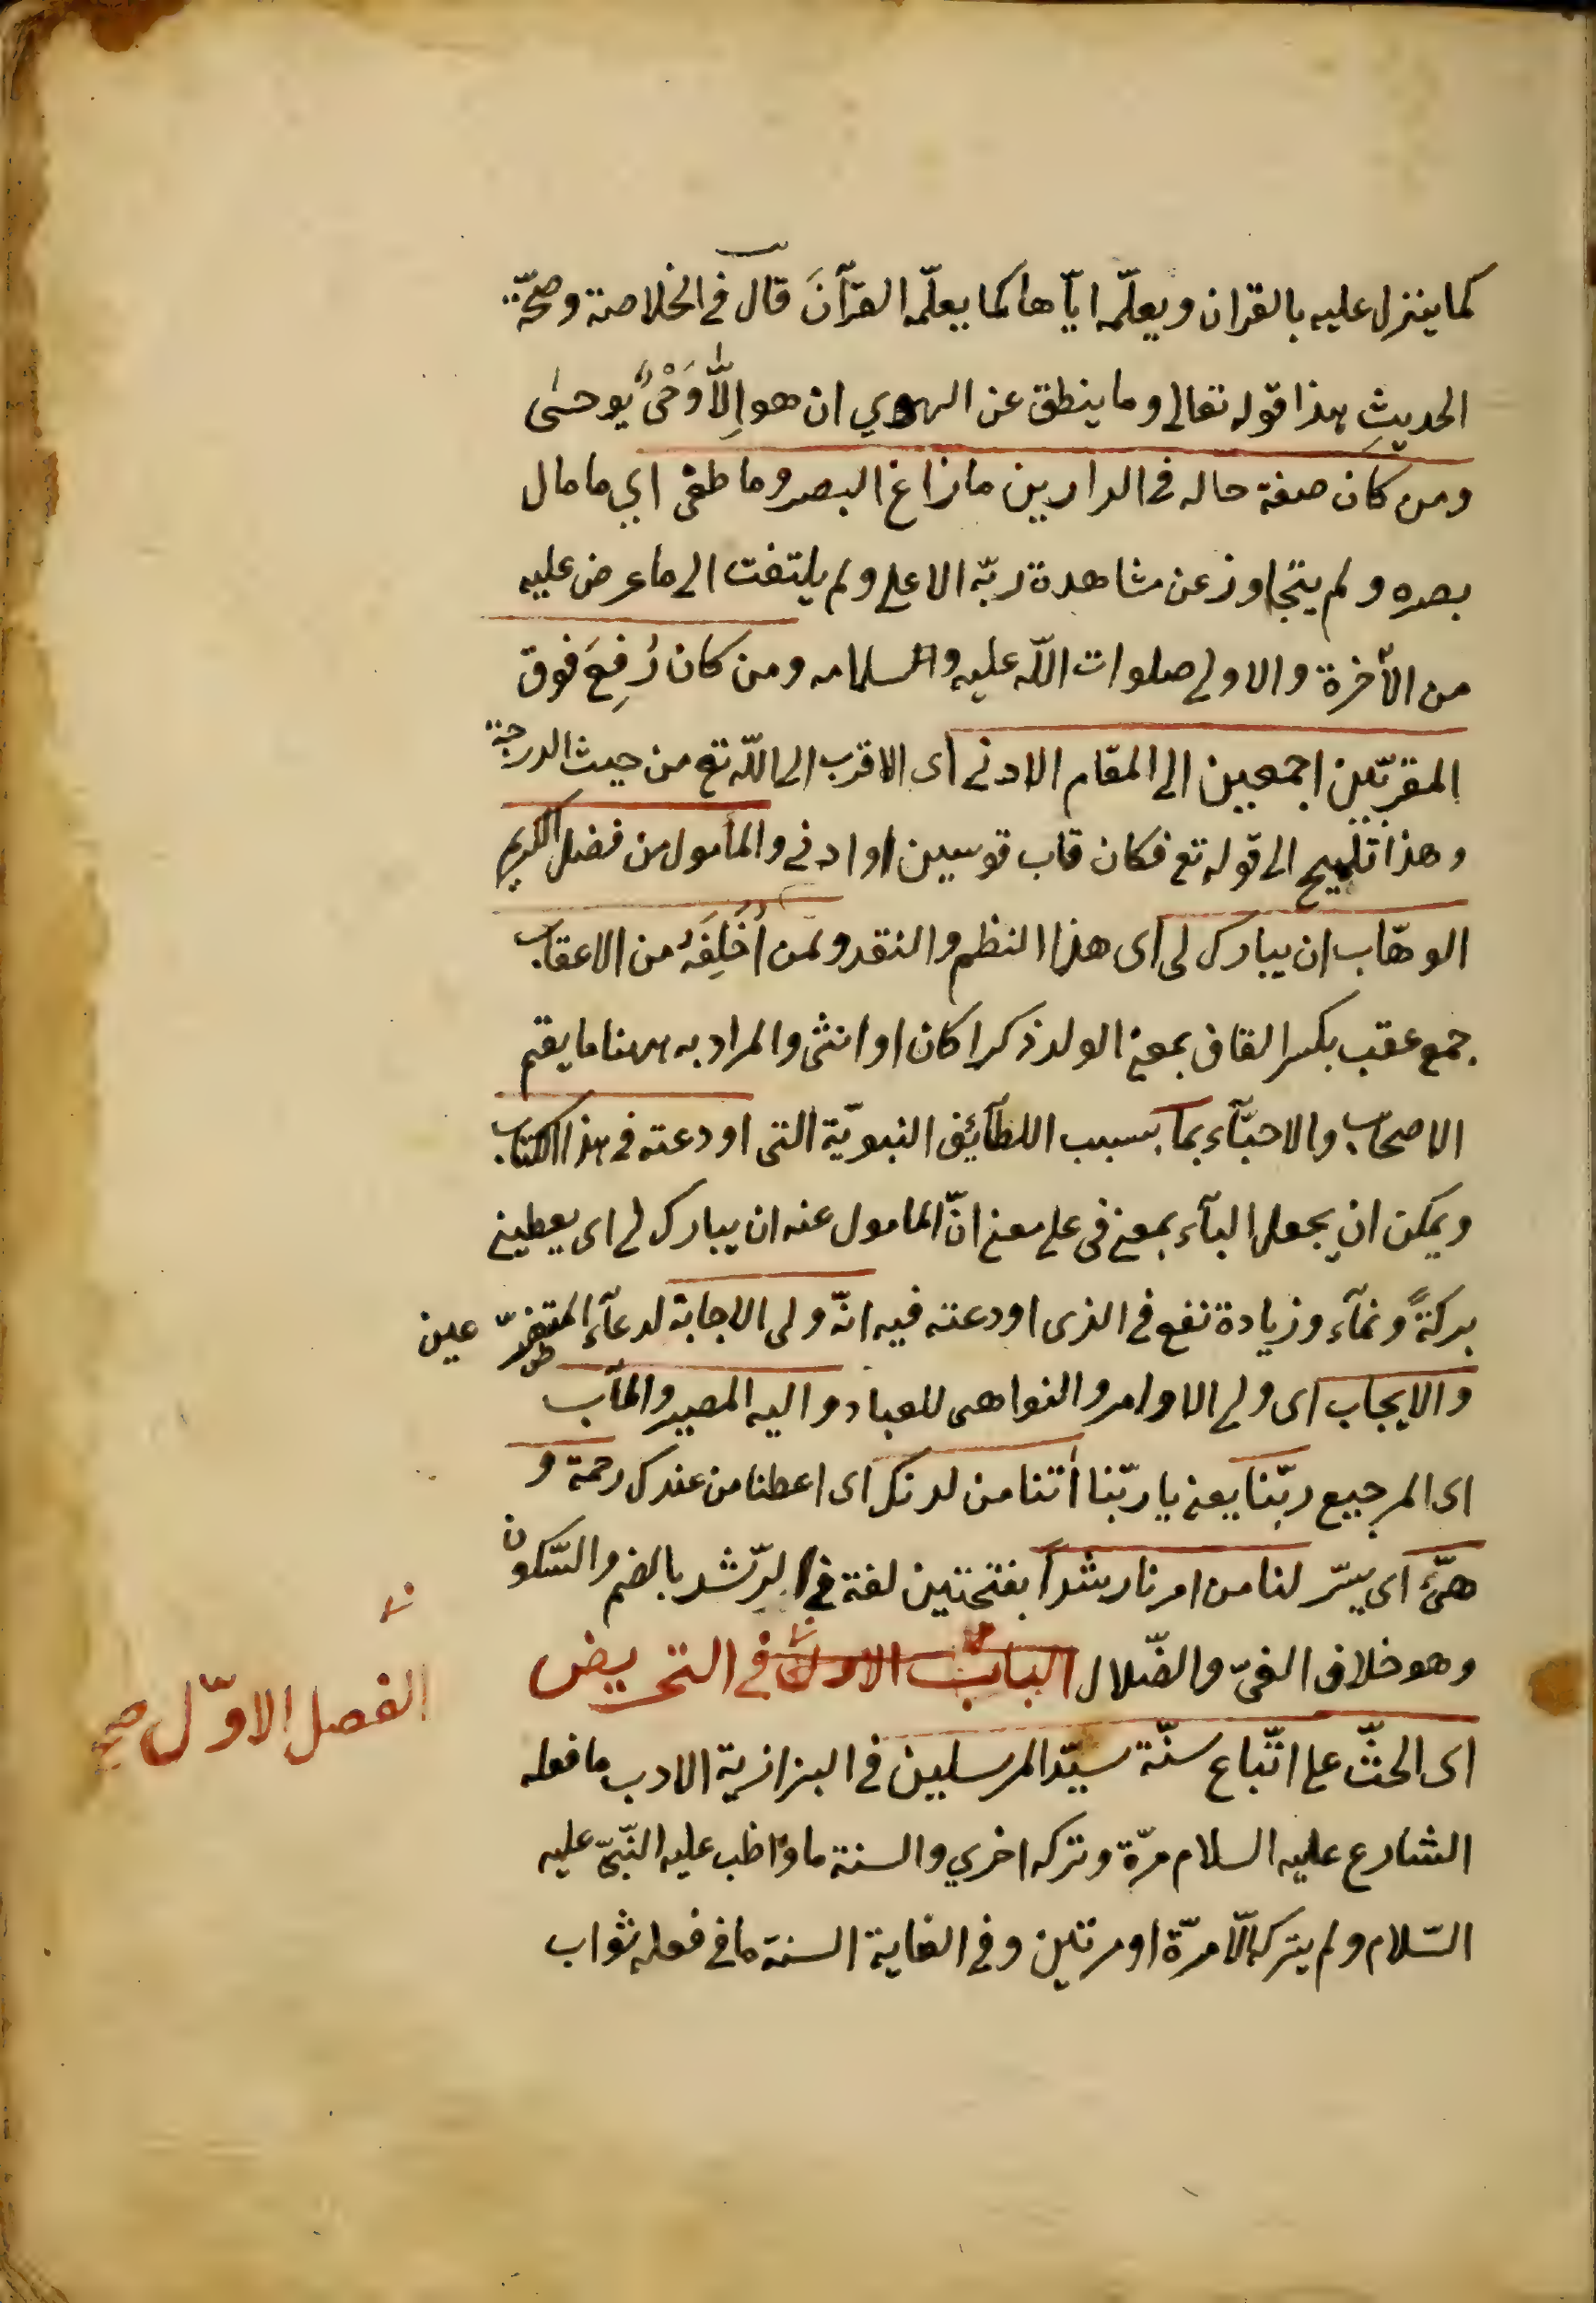 كما ينزل عليه بالقران ويعلّمه ايّاها كما يعلّمه القرآنَ قال فى الخلاصة وصحّة
الحديثِ بهذا قوله تعالى وما ينطق عن الهوي ان هو إلّا وَحْىٌ يوحىٰ
ومن كان صفة حاله فى الدارين ما زاغ البصر وما طغى اي ما مال
بصره ولم يتجاوز عن مشاهدة ربّه الاعلى ولم يلتفت الى ما عرض عليه
من الآخرة والاولى صلوات اللّه عليه وسلامه ومن كان رُفِعَ فوق
المقرّبين اجمعين الى المقام الادنى اى الاقرب الى اللّه تع من حيث الدرجة
وهذا تلميح الى قوله تع فكان قاب قوسين او ادنى والمأمول من فضل الكريم
الوهّاب ان يبارك لى اى هذا النظم والنقد ولمن أُخَلِفَهُ من الاعقاب
جمع عقب بكسر القاف بمعنى الولد ذكرا كان او انثى والمراد به ههنا ما يقم
الاصحاب والاحبّآء بما بسبب اللطآئف النبويّة التى اودعته فى هذا الكتاب
ويمكن ان يجعل البآء بمعنى فى على معنى انّ المامول عنه ان يبارك لى اى يعطينى
بركةً ونمآء وزيادة نفع فى الذى اودعته فيه انّه ولى الاجابة لدعآء المتضرّعين
والايجاب اى ولى الاوامر والنواهى للعباد واليه المصير والمآب
اى المرجيع ربّنا يعنى يا ربّنا أتنا من لدنك اى اعطنا من عندك رحمة و
هيّء اى يسّر لنا من امرنا رشداً بفتحتين لغة فى الرّشد بالضم والسّكون
وهو خلاف الغىّ والضّلال الباب الاول فى التحريض
الفصل الاوّل صح
اى الحثّ على اتّباع سنّة سيّد المرسلين فى البزازية الادب ما فعله
الشارع عليه السلام مرّة وتركه اخري والسنة ما واظب عليه النّبىّ عليه
السّلام ولم يتركه الّا مرّة او مرتين وفى الغاية السنة ما فى فعله ثواب